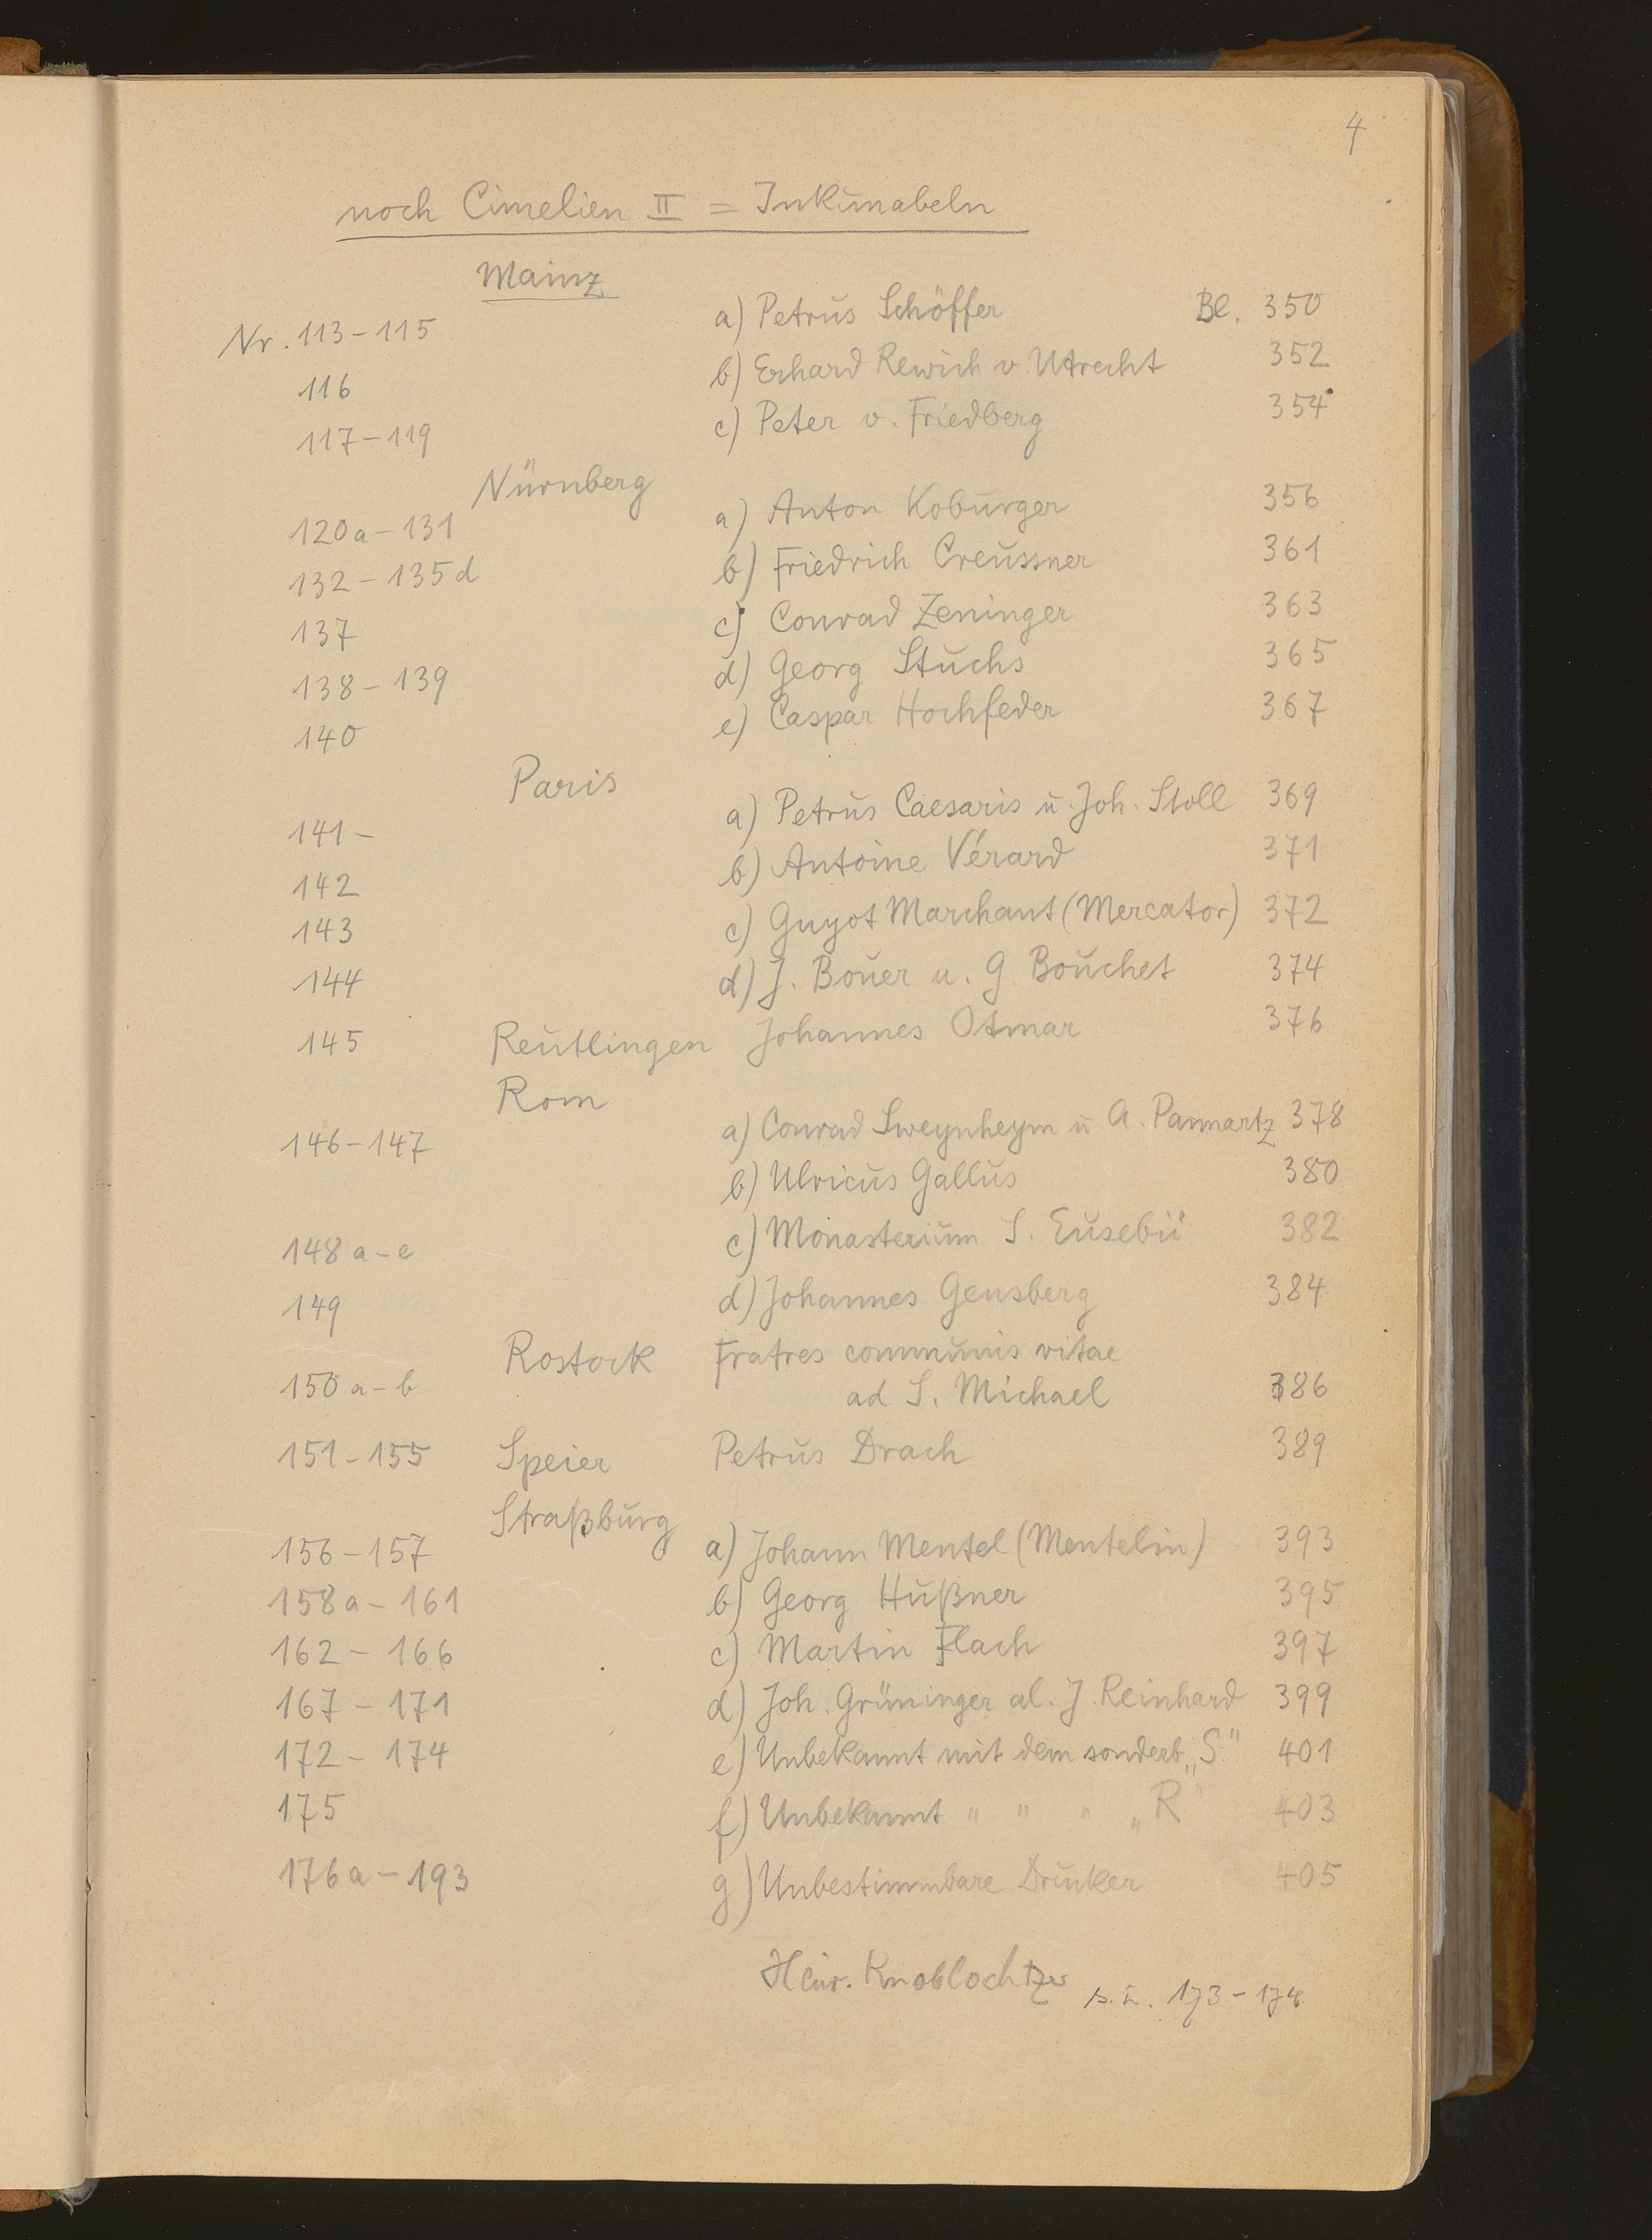 4
noch Cimelien II = Inkunabeln
Mainz
Nr. 113-115 a) Petrus Schöffer Bl. 350
116 b) Erhard Rewich v. Utrecht 352
117-119 c) Peter v. Friedberg 354
Nürnberg
120a-131 a) Anton Koburger 356
132-135d b) Friedrich Creussner 361
137 c) Conrad Zeninger 363
138-139 d) Georg Stuchs 365
140 e) Caspar Hochfeder 367
Paris
141- a) Petrus Caesaris u. Joh. Stoll 369
142 b) Antoine Vérard 371
143 c) Guyot Marchant (Mercator) 372
144 d) J. Bouer u. G. Bouchet 374
145 Reutlingen Johannes Otmar 376
Rom
146-147 a) Conrad Sweynheym u A. Pannartz 378
b) Ulricus Gallus 380
148 a-e c) Monasterium S. Eusebii 382
149 d) Johannes Gensberg 384
Rostock Fratres communis vitae
150 a-b ad S. Michael 386
151-155 Speier Petrus Drach 389
Straßburg
156-157 a) Johann Mentel (Mentelin) 393
158a-161 b) Georg Hußner 395
162-166 c) Martin Flach 397
167-171 d) Joh. Grüninger al. J. Reinhard 399
172-174 e) Unbekannt mit dem sonderb. „S" 401
175 f) Unbekannt " " " „R" 403
176a-193 g) Unbestimmbare Drucker 405
Heinr. Knoblochtzer 173-174